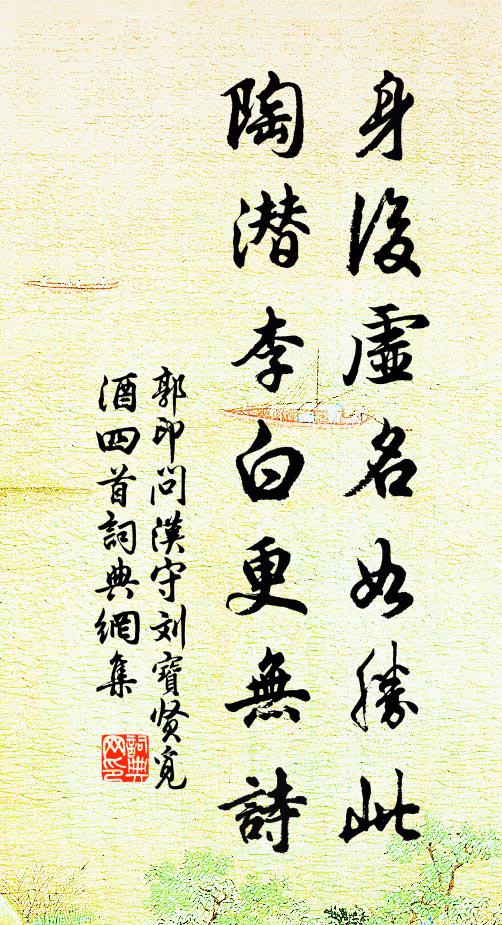 身後虛名如勝此
陶潜李白更無詩
郭印問漢守刘寶贤覓
酒四首詞典網集
詞典
网印